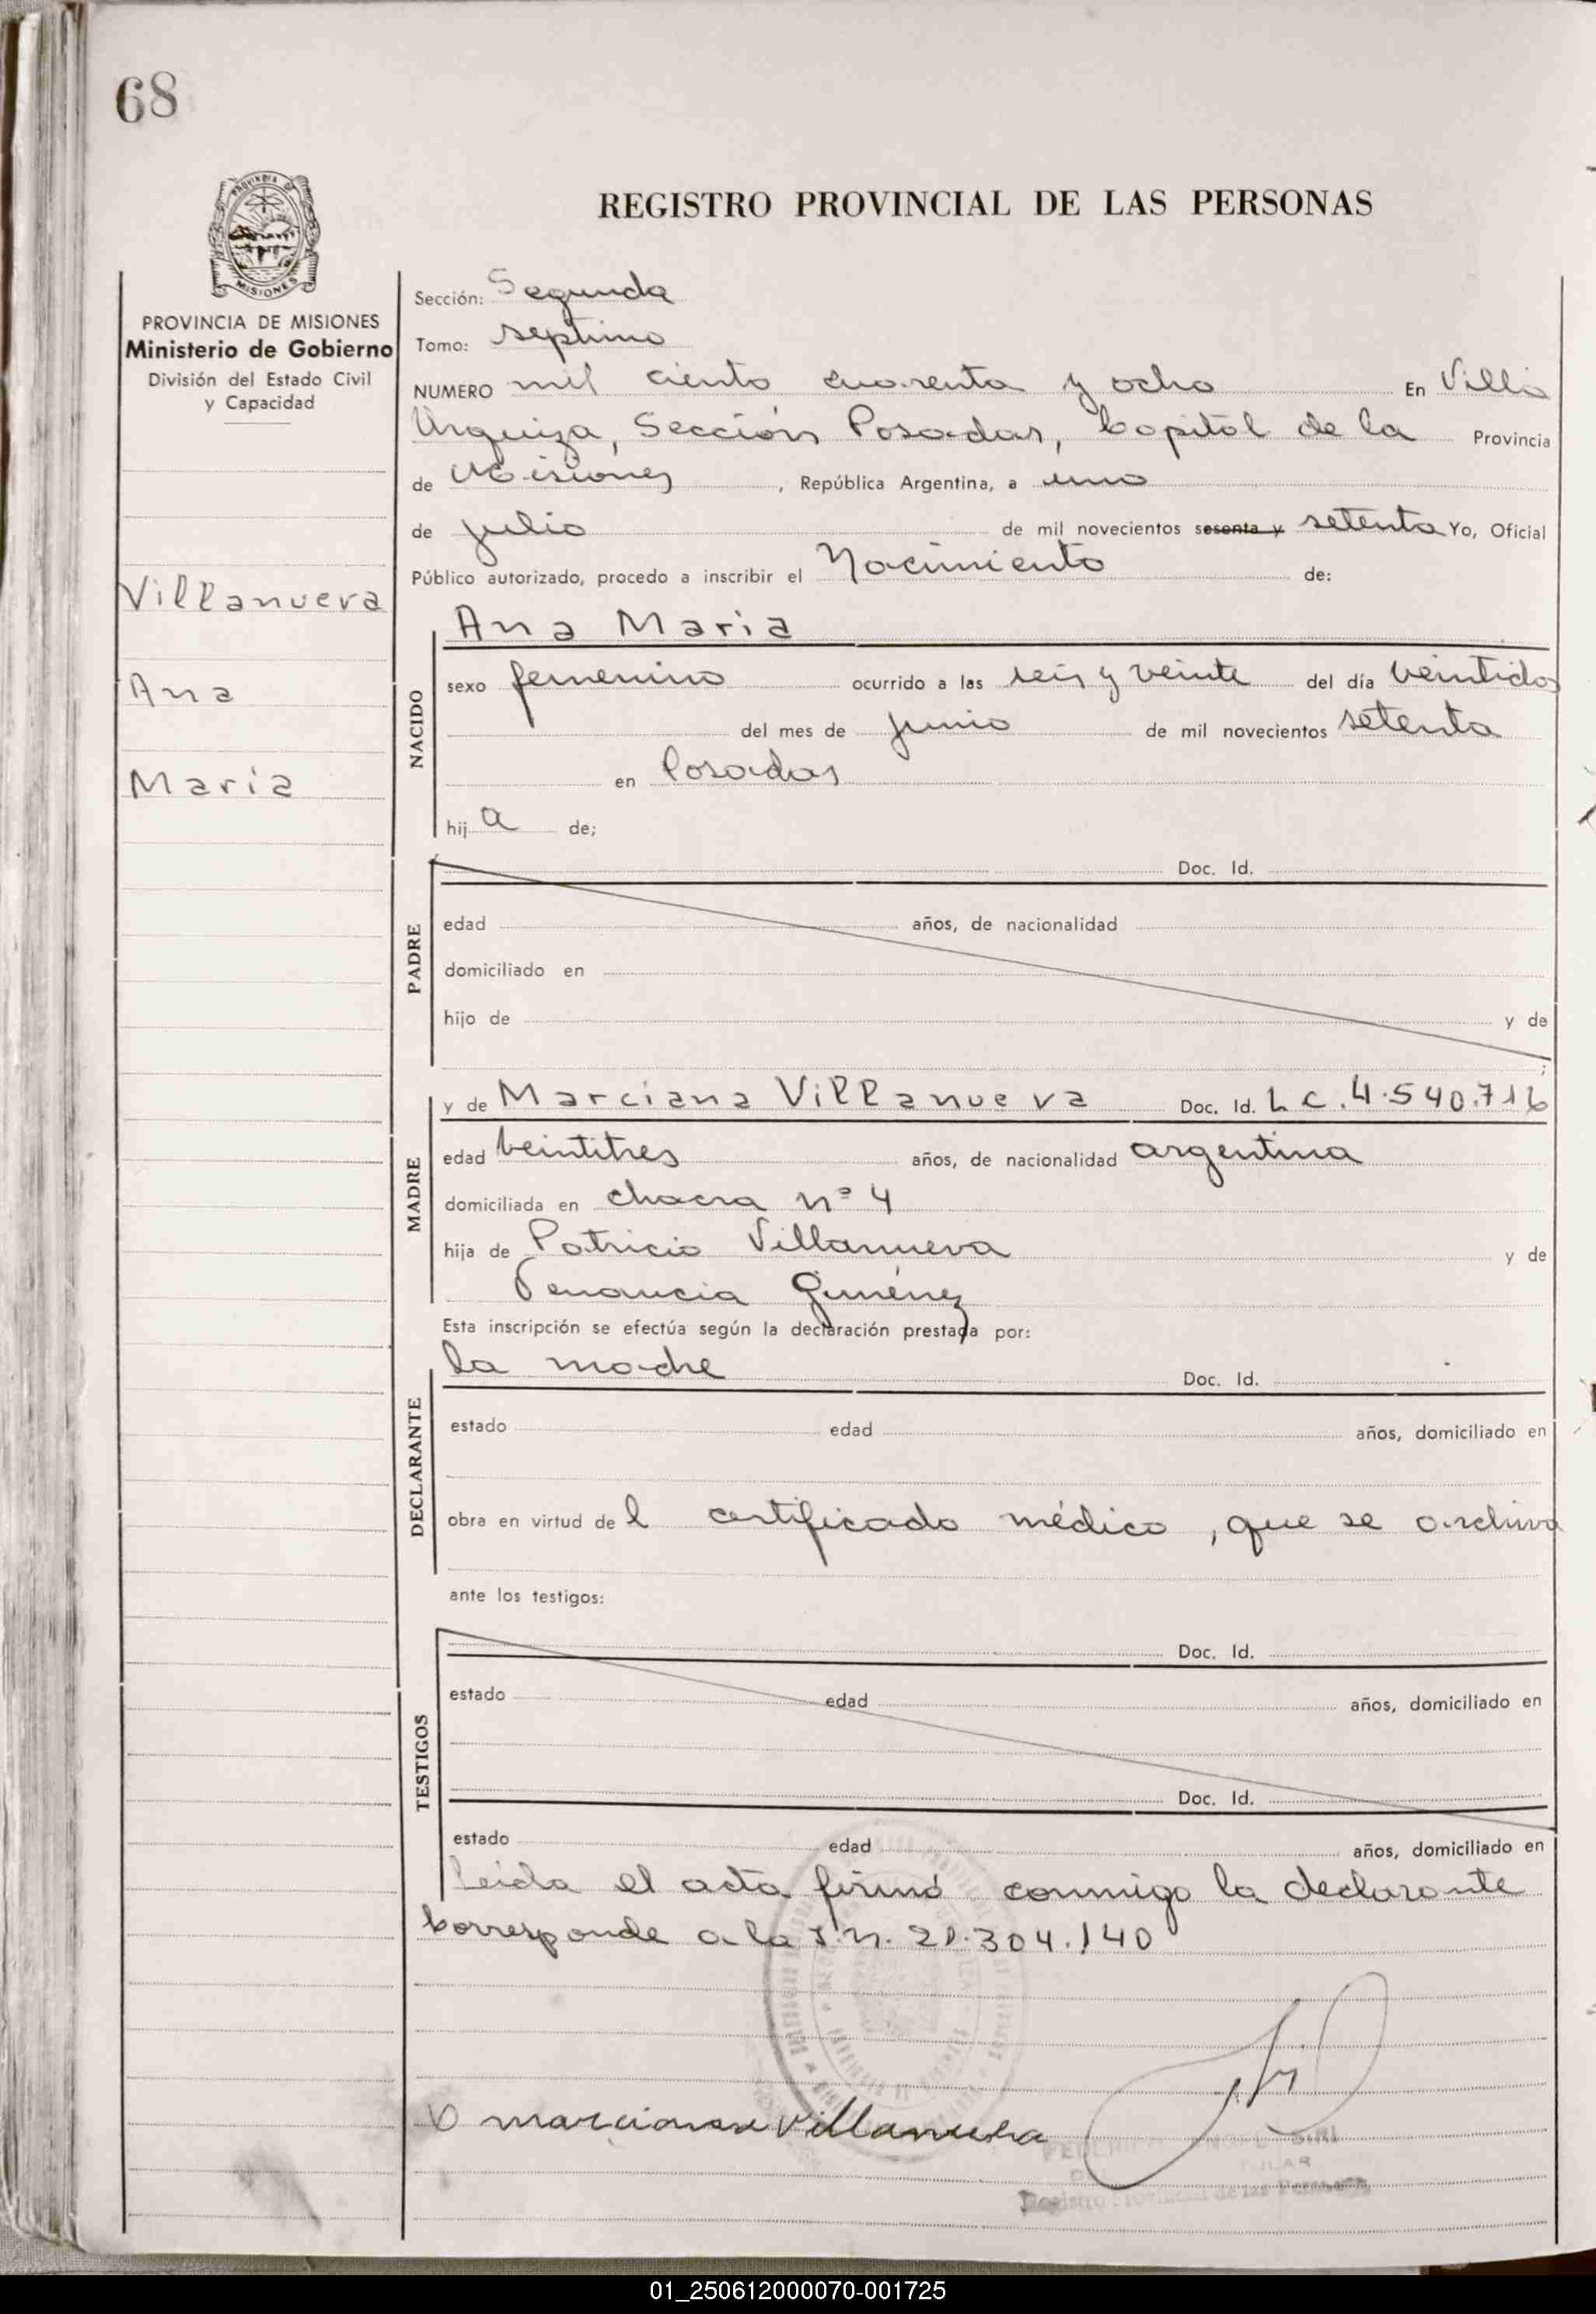 68
REGISTRO PROVINCIAL DE LAS PERSONAS
PROVINCIA DE
MISIONES
PROVINCIA DE MISIONES
Ministerio de Gobierno
División del Estado Civil
y Capacidad
Villanueva
Ana
María
Sección: Segunda
Tomo: septimo
NUMERO mil ciento cuarenta y ocho En Villa
Urquiza, Sección Posadas, Capital de la Provincia
de Misiones, República Argentina, a uno
de julio de mil novecientos sesenta y setenta Yo, Oficial
Público autorizado, procedo a inscribir el Nacimiento de:
NACIDO
Ana Maria
sexo femenino ocurrido a las seis y veinte del día veintidos
del mes de junio de mil novecientos setenta
en Posadas
hija de;
PADRE
Doc. Id.
edad años, de nacionalidad
domiciliado en
hijo de y de
;
MADRE
y de Marciana Villanueva Doc. Id. L C. 4.540.716
edad veintitres años, de nacionalidad argentina
domiciliada en chacra nº 4
hija de Patricio Villanueva y de
Giménez
Esta inscripción se efectúa según la declaración prestada por:
DECLARANTE
la madre Doc. Id.
estado edad años, domiciliado en
obra en virtud del certificado médico, que se archiva
ante los testigos:
TESTIGOS
Doc. Id.
estado edad años, domiciliado en
Doc. Id.
estado edad años, domiciliado en
Leida el acta firmó conmigo la declarante
Corresponde a la I.N. 21.304.140
marciana villanueva
Registro Provincial de las Personas
01_250612000070-001725